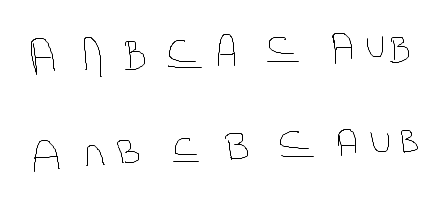 A ∩ B ⊆ A ⊆ A ∪ B
A ∩ B ⊆ B ⊆ A ∪ B